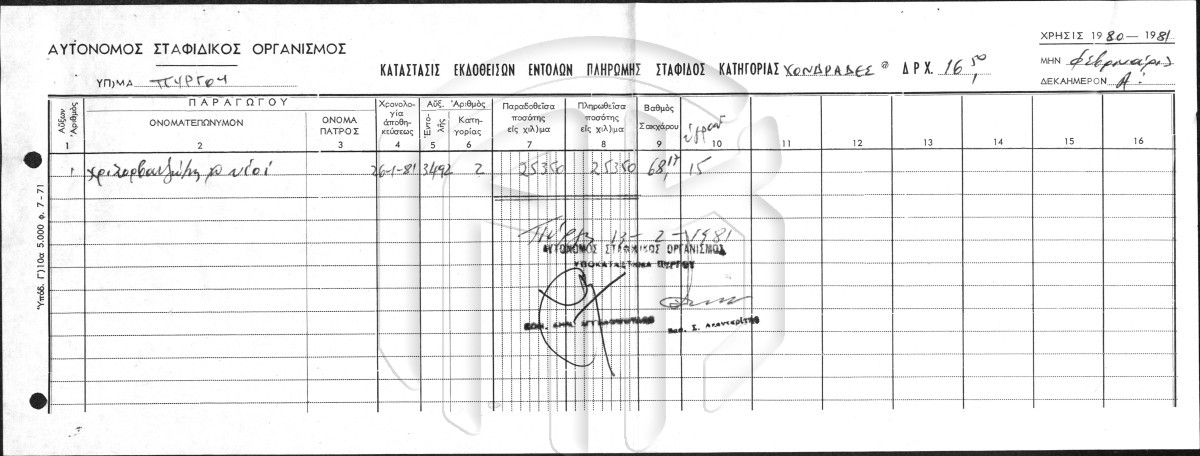 ΑΥΤΟΝΟΜΟΣ ΣΤΑΦΙΔΙΚΟΣ ΟΡΓΑΝΙΣΜΟΣ
ΧΡΗΣΙΣ 1980 — 1981
ΥΠ)ΜΑ ΠΥΡΓΟΥ
ΚΑΤΑΣΤΑΣΙΣ ΕΚΔΟΘΕΙΣΩΝ ΕΝΤΟΛΩΝ ΠΛΗΡΩΜΗΣ ΣΤΑΦΙΔΟΣ ΚΑΤΗΓΟΡΙΑΣ ΧΟΝΔΡΑΔΕΣ @ ΔΡΧ. 16,50
ΜΗΝ Φεβρουάριος
ΔΕΚΑΗΜΕΡΟΝ Α!
Αὔξων Ἀριθμὸς
ΠΑΡΑΓΩΓΟΥ
ΟΝΟΜΑΤΕΠΩΝΥΜΟΝ
ΟΝΟΜΑ ΠΑΤΡΟΣ
Χρονολογία ἀποθηκεύσεως
Αὔξ. Ἀριθμὸς
Ἐντολῆς
Κατηγορίας
Παραδοθεῖσα ποσότης εἰς χιλ)μα
Πληρωθεῖσα ποσότης εἰς χιλ)μα
Βαθμὸς Σακχάρου
ὑγρασ
1 2 3 4 5 6 7 8 9 10 11 12 13 14 15 16
1 υἱοί 26-1-81 3492 2 25350 25350 68,17 15
Πύργος 13-2-1981
ΑΥΤΟΝΟΜΟΣ ΣΤΑΦΙΔΙΚΟΣ ΟΡΓΑΝΙΣΜΟΣ
ΥΠΟΚΑΤΑΣΤΗΜΑ ΠΥΡΓΟΥ
Ὑπόδ. Γ)10α 5.000 φ. 7 - 71